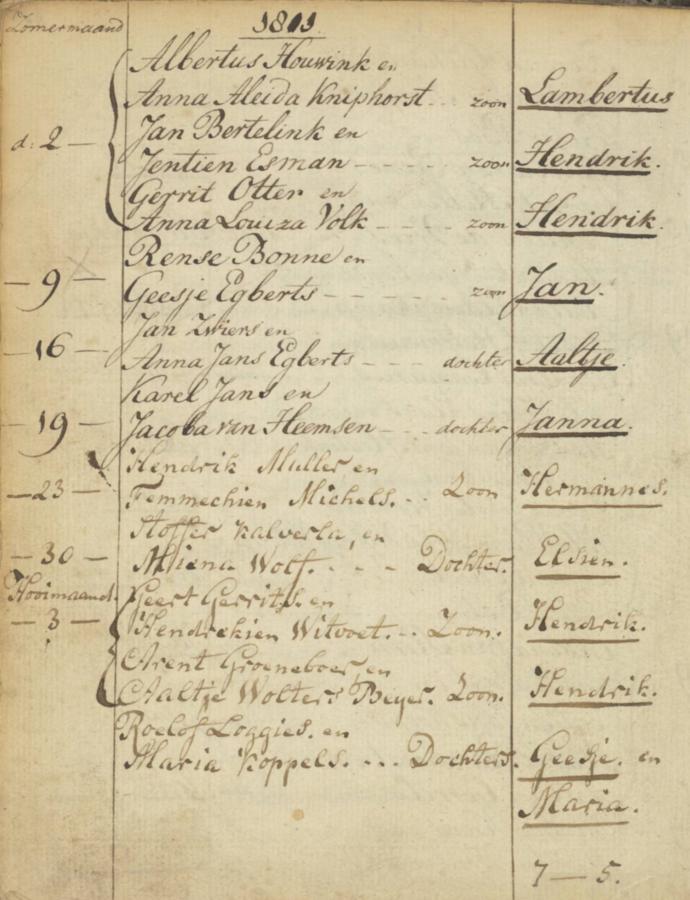 Zomermaand 1811
Albertus Houwink en
Anna Aleida Kniphorst zoon Lambertus
d: 2 Jan Bertelink en
Jentien Esman zoon Hendrik.
Gerrit Otter en
Anna Louiza Volk zoon Hendrik.
Rense Bonne en
9 Geesje Egberts zoon Jan.
Jan Zwiers en
16 Anna Jans Egberts dochter Aaltje.
Karel Jans en
19 Jacoba van Heemsen dochter Janna.
Hendrik Muller, en
23 Femmechien Michels. Zoon Hermannes.
Stoffer Kalverla, en
30 Wolf. Dochter. Elsien.
Hooimaand. Geert Gerrits. en
3 Hendrekien Witvoet. Zoon. Hendrik.
Arent Groeneboer, en
Aaltje Wolters Beyer. Zoon. Hendrik.
Roelof Loggies. en
Maria Koppels. Dochters. Geesje. en
Maria.
7 — 5.